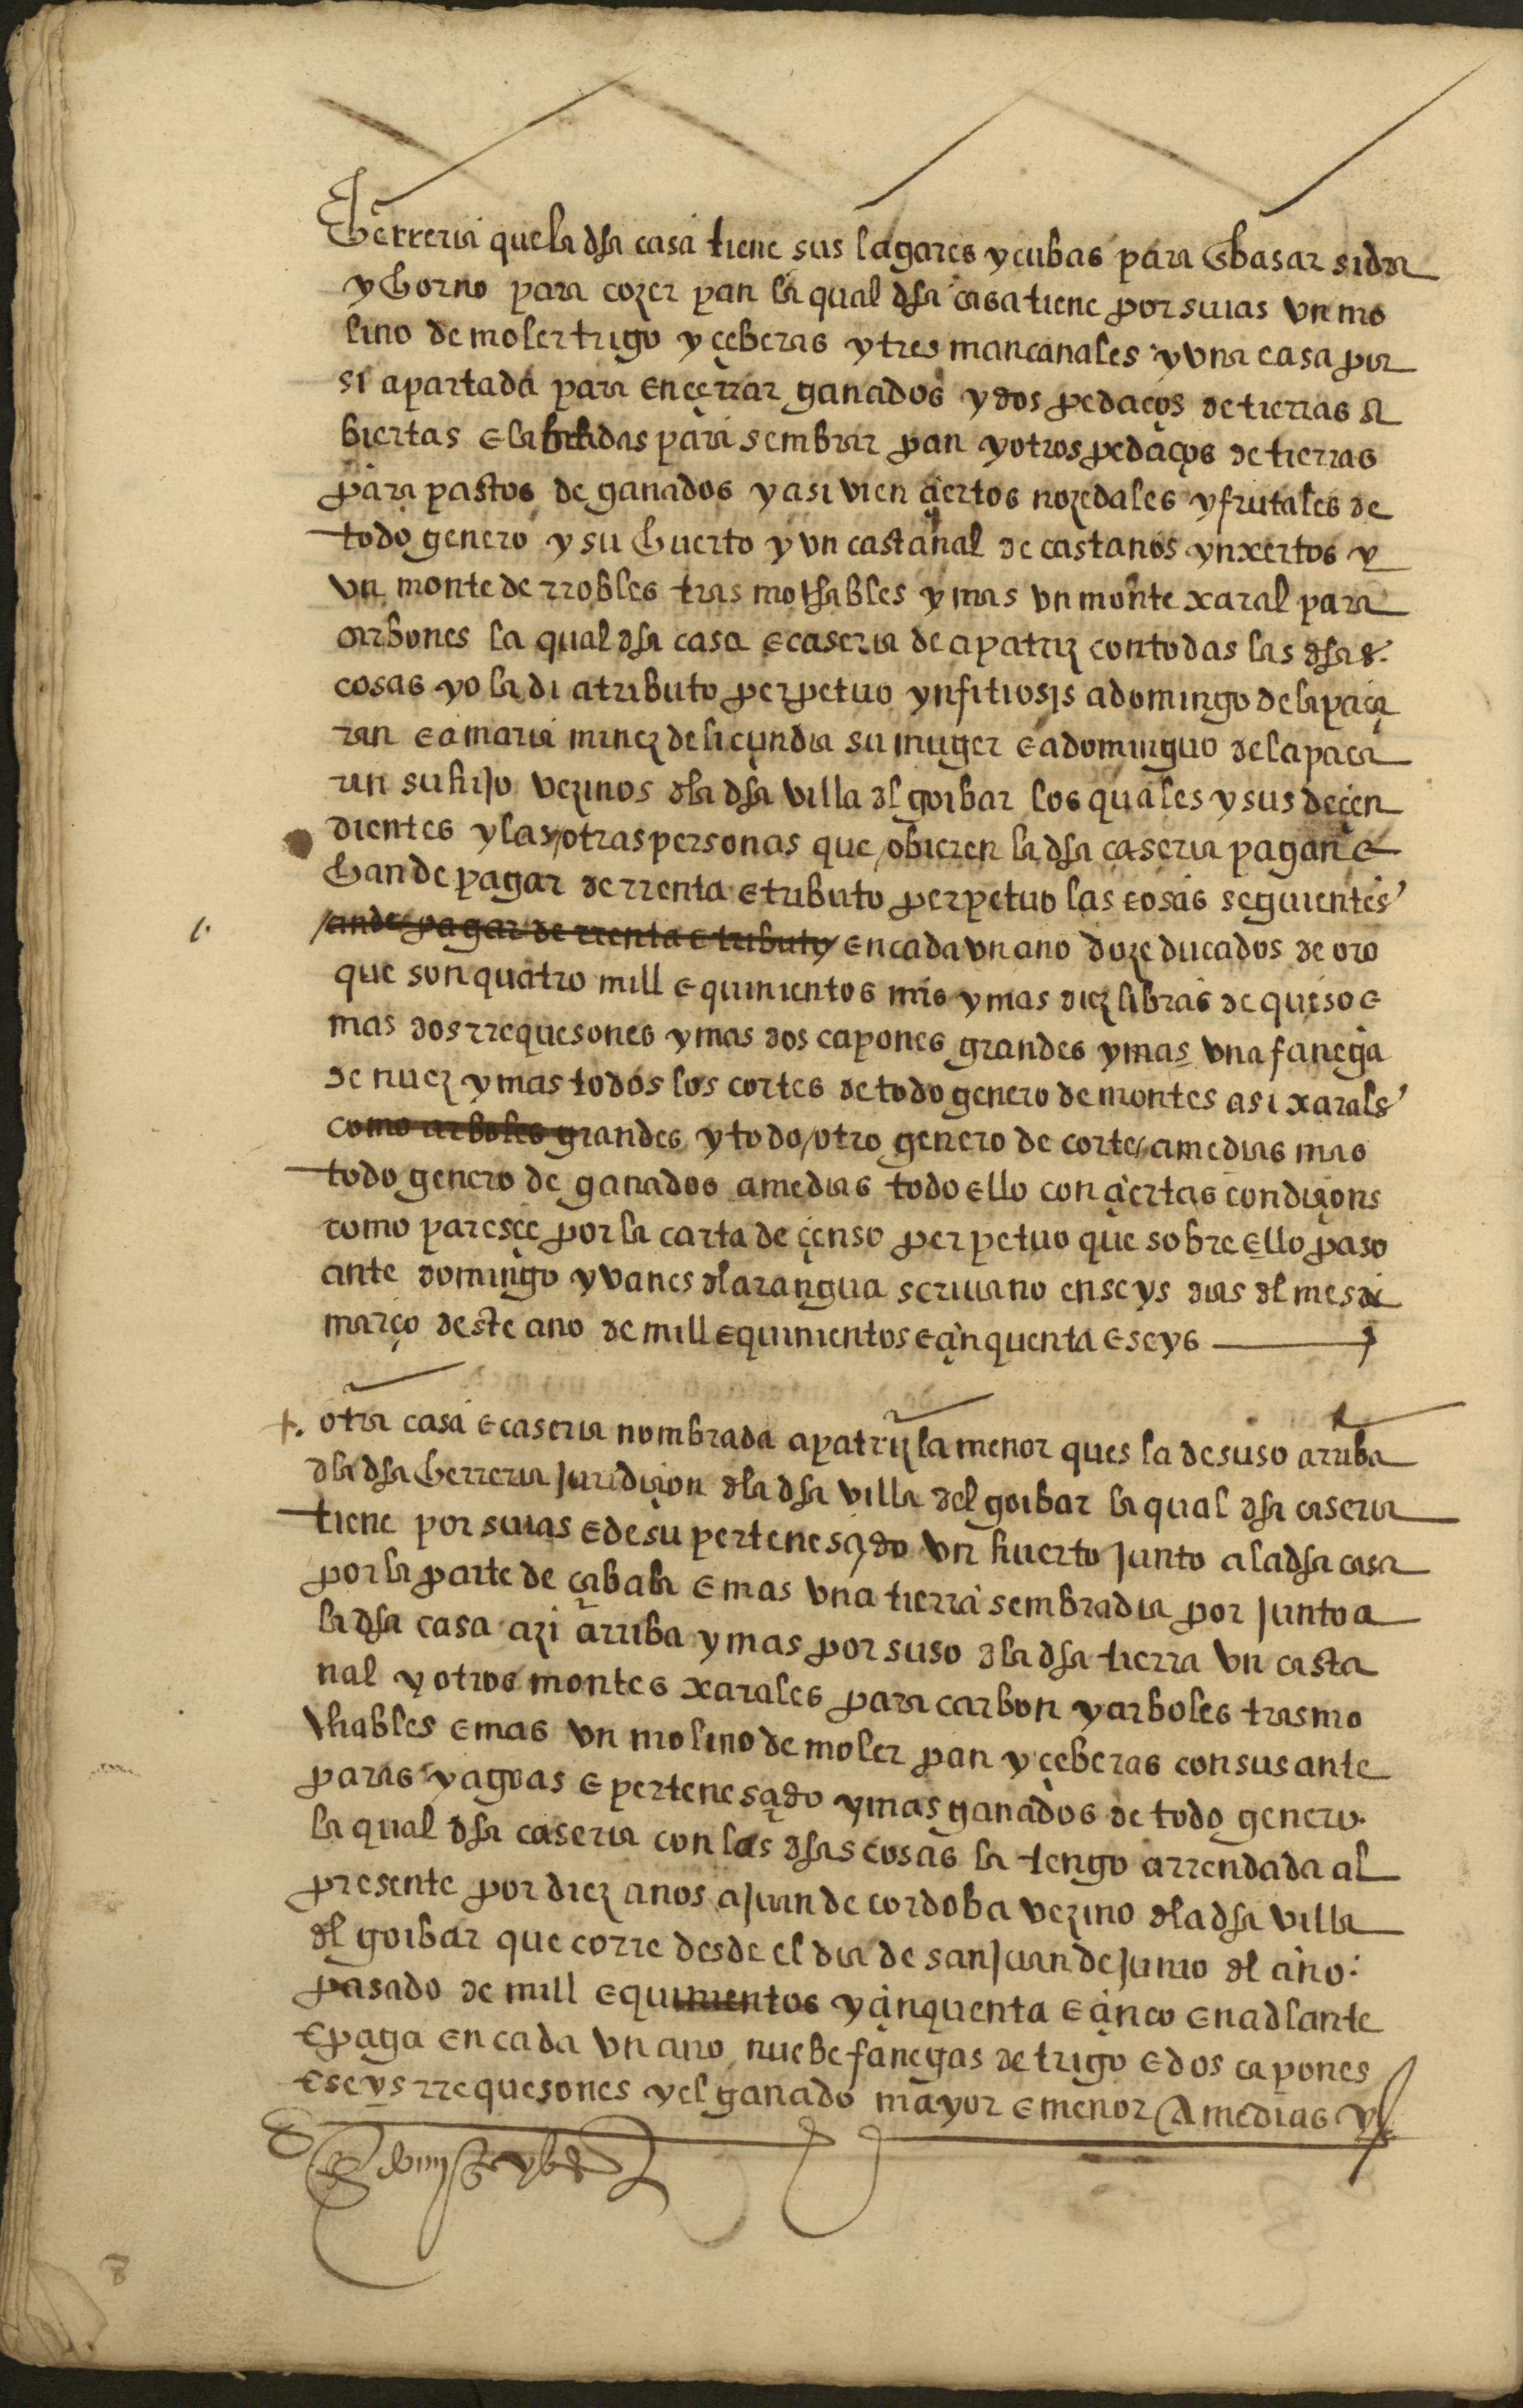 herreria que la dha casa tiene sus lagares y cubas para hbasar sidra
y horno para cozer pan la qual dha casa tiene por suias vn mo
lino de moler trigo y çeberas y tres mancanales y vna casa por
si apartada para ençerrar ganados y dos pedaços de tierras a
biertas e labradas para sembrar pan y otros pedaços de tierras
para pastos de ganados y asi vien çiertos nozedales y frutales de
todo genero y su huerto y vn castanal de castanos ynxertos y
vn monte de rrobles trasmochables y mas vn monte xaral para
carbones la qual dha casa e caseria de apatriz con todas las dhas
cosas yo la di a tributo perpetuo ynfitiosis a domingo de lapaça
ran e a maria minez de liçundia su muger e a dominguo de lapaca
ran su hijo vezinos dla dha villa dl goibar los quales y sus deçen
dientes y las otras personas que obieren la dha caseria pagan e
han de pagar de rrenta e tributo perpetuo las cosas seguientes
an de pagar de rrenta e tributo en cada vn ano doze ducados de oro
que son quatro mill e quinientos mrs y mas diez libras de queso e
mas dos rrequesones y mas dos capones grandes y mas vna fanega
de nuez y mas todos los cortes de todo genero de montes asi xarals
como arboles grandes y todo otro genero de corte a medias mas
todo genero de ganados a medias todo ello con çiertas condiçions
como paresçe por la carta de çenso perpetuo que sobre ello paso
ante domingo yvanes dlarangua scriuano en seys dias dl mes de
março deste ano de mill e quinientos e çinquenta e seys
+. otra casa e caseria nombrada apatriz la menor ques la de suso arriba
dla dha herreria juridiçion dla dha villa del goibar la qual dha caseria
tiene por suias e de su pertenesçido vn huerto junto a la dha casa
por la parte de çabala e mas vna tierra sembradia por junto a
la dha casa azi arriba y mas por suso dla dha tierra vn casta
nal y otros montes xarales para carbon y arboles trasmo
chables e mas vn molino de moler pan y çeberas con sus ante
paras y aguas e pertenesçido y mas ganados de todo genero.
la qual dha caseria con las dhas cosas la tengo arrendada al
presente por diez anos a juan de cordoba vezino dla dha villa
dl goibar que corre desde el dia de san juan de junio dl ano
pasado de mill e quinientos y çinquenta e çinco en adlante
e paga en cada vn ano nuebe fanegas de trigo e dos capones
e seys rrequesones y el ganado mayor e menor a medias y